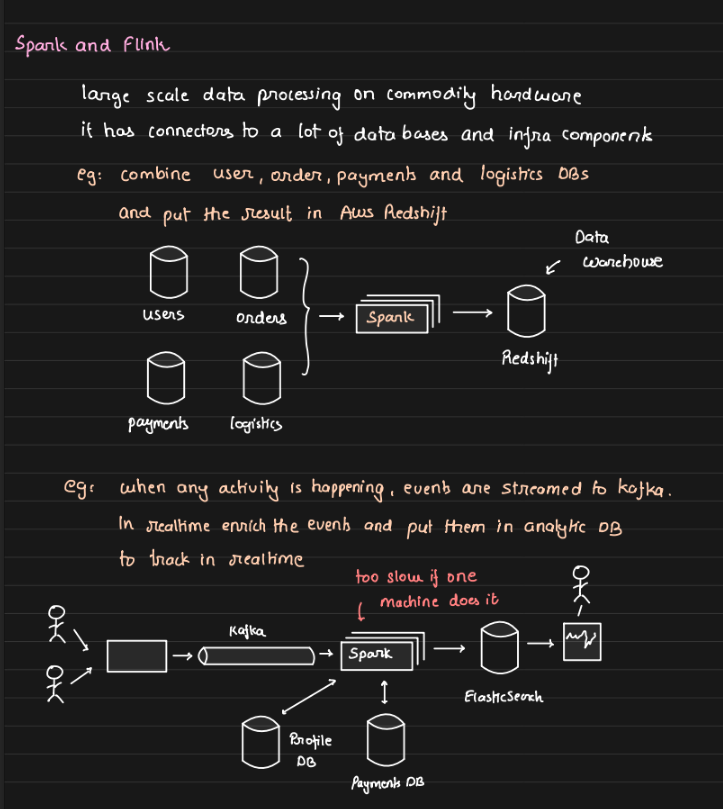 Spark and Flink
large scale data processing on commodity hardware
it has connectors to a lot of databases and infra components
eg: combine user, order, payments and logistics DBs
and put the result in AWS Redshift
Data
warehouse
users
orders
Spark
Redshift
payments
logistics
eg: when any activity is happening, events are streamed to kafka.
In realtime enrich the events and put them in analytic DB
to track in realtime
too slow if one
machine does it
Kafka
Spark
ElasticSearch
Profile
DB
Payments DB